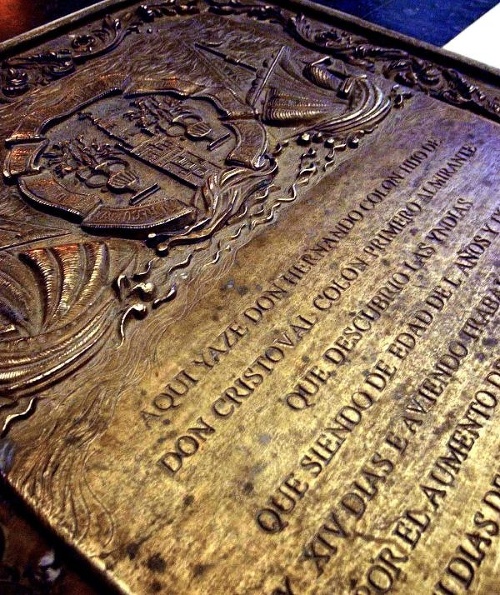 AQUI YAZE DON HERNANDO COLON HIJO DE
DON CRISTOVAL COLON PRIMERO ALMIRANTE
QUE DESCUBRIO LAS YNDIS
QUE SIENDO DE EDAD DE L AÑOS Y
XIV DIAS E AVIENDO
POR EL AUMENTO
DIAS